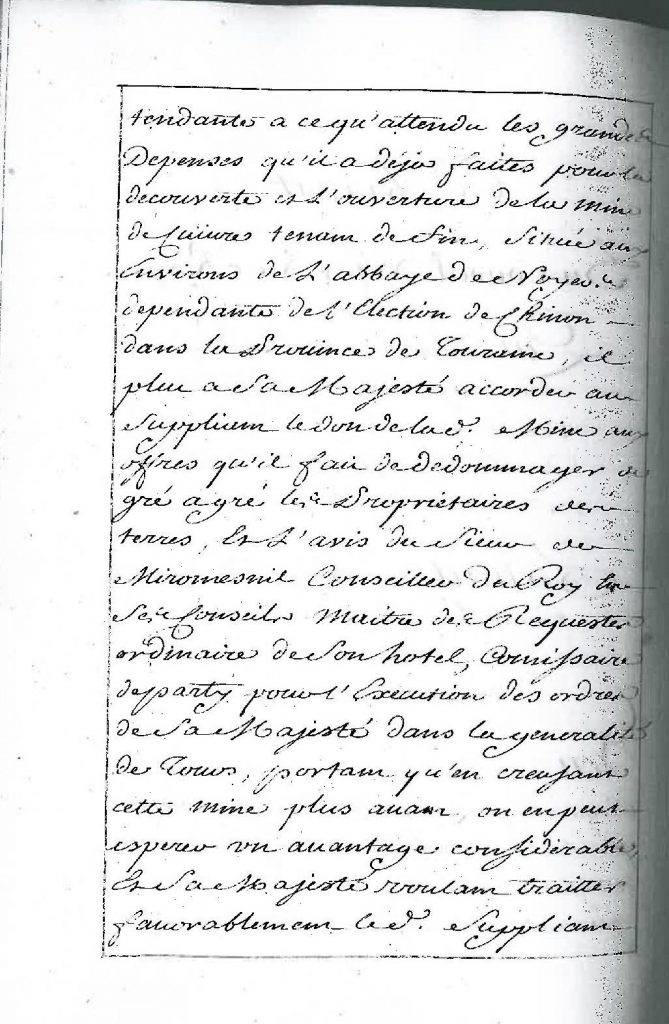 tendante a ce qu'attendu les grandes
Depenses qu'il a deja faites pour la
decouverte et L'ouverture de la mine
de Cuivre tenam de fin, Située aux
Environs de L'abbaye de Noyers
dependante de l'Election de Chinon
dans la Province de Touraine, il
plut a Sa Majesté accorder au
Suppliam le don de lad.e Mine aux
offres qu'il fait de dedommager de
gré a gré les Proprietaires des
terres, Et L'avis du Sieur de
Miromesnil Conseiller du Roy En
Ses Conseils maitre des Requestes
ordinaire de Son hotel, Comissaire
departy pour l'Execution des ordres
de Sa Majesté dans la generalité
de Tours, portam qu'en creusant
cette mine plus auam, on en peut
esperer vn auantage considerable,
Et Sa Majesté voulam traitter
fauorablemem led. Suppliam